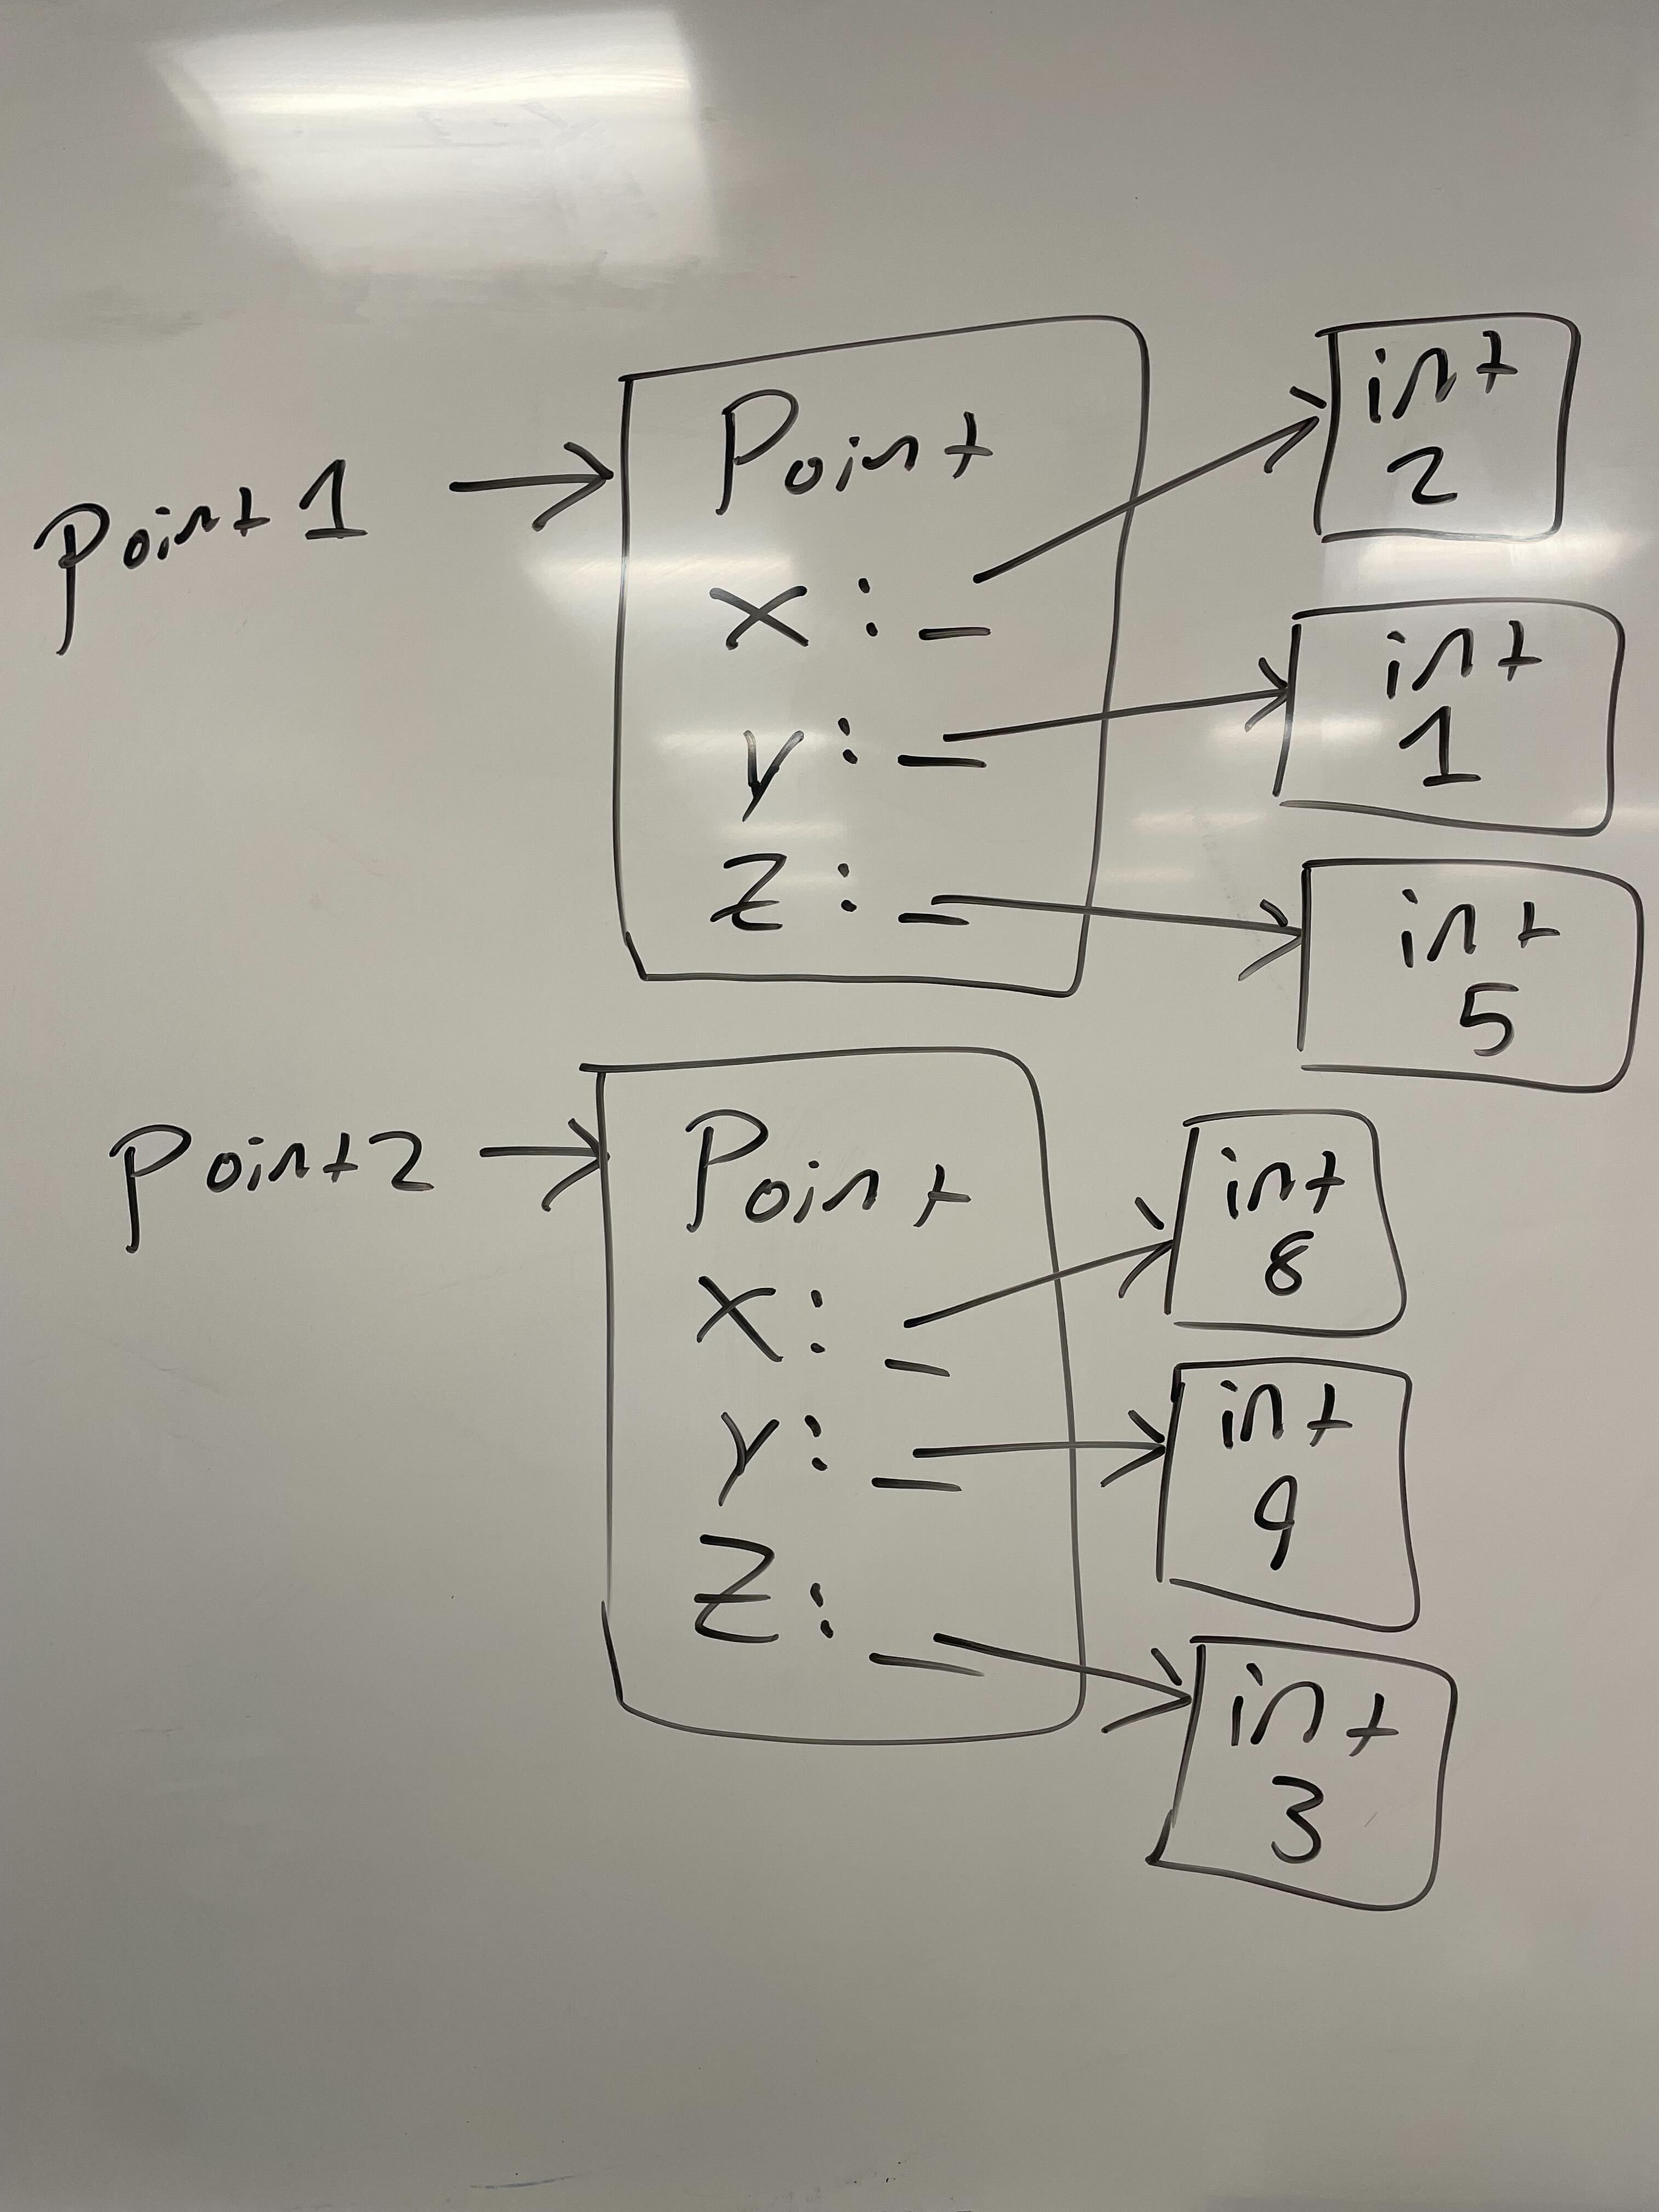 Point1
Point
x: _
y: _
z: _
int
2
int
1
int
5
Point2
Point
x: _
y: _
z: _
int
8
int
9
int
3